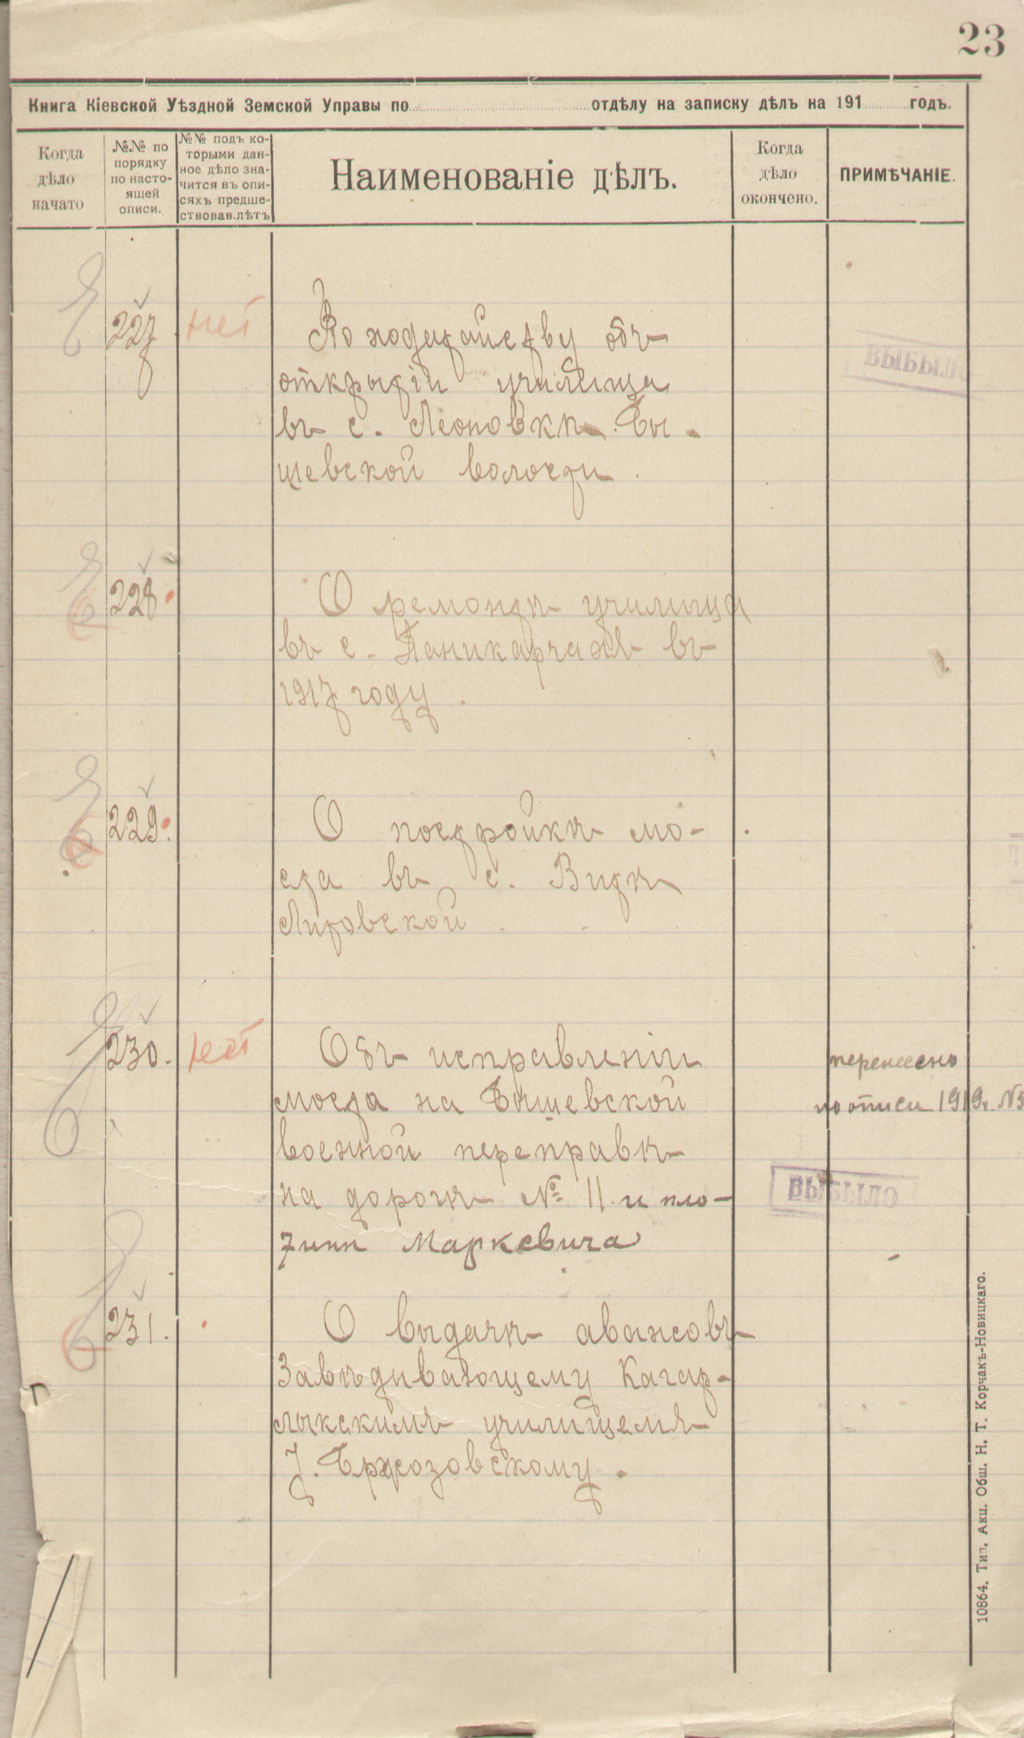 23
Книга Кіевской Уѣздной Земской Управы по отдѣлу на записку дѣлъ на 191 годъ.
Когда дѣло начато
№№ по порядку по настоящей описи.
№№ подъ которыми данное дѣло значится въ описяхъ предшествовав. лѣтъ
Наименованіе дѣлъ.
Когда дѣло окончено.
ПРИМѢЧАНІЕ.
227 нет По ходатайству объ
открытіи училища
въ с. Леоновкѣ Бы-
шевской волости.
выбыло
228. О ремонтѣ училища
въ с. Паникарчахъ въ
1917 году.
229. О постройкѣ мо-
ста въ с. Витѣ
Литовской.
230. нет Объ исправленіи
моста на Бышевской
военной переправѣ
на дорогѣ № 11 и пло-
тинѣ Маркевича
перенесено
по описи 1919г. №
выбыло
231. О выдачѣ авансовъ
Завѣдывающему Кагар-
лыкскимъ училищемъ
Т. Бржозовскому.
10864. Тип. Акц. Общ. Н. Т. Корчакъ-Новицкаго.